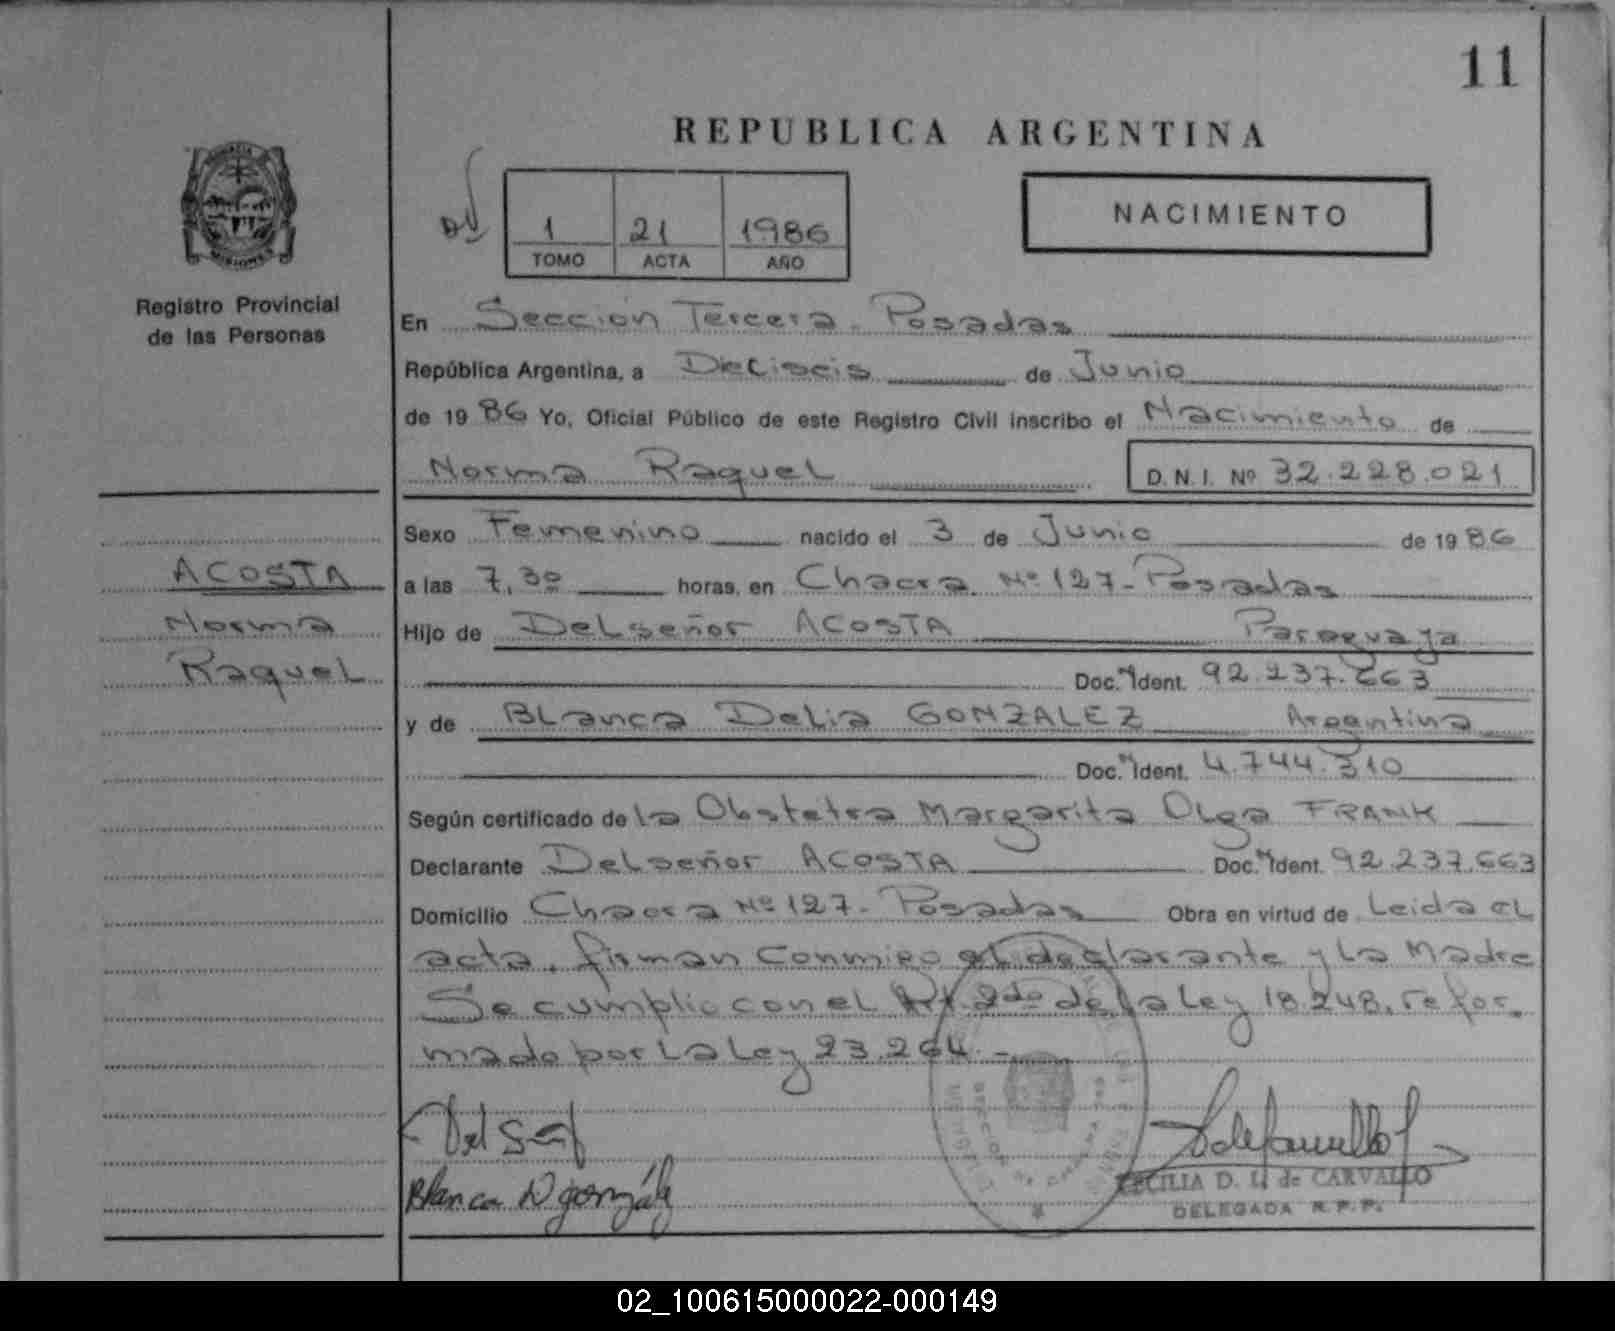 11
REPUBLICA ARGENTINA
1 21 1986
TOMO ACTA AÑO
NACIMIENTO
MISIONES
Registro Provincial
de las Personas
ACOSTA
Norma
Raquel
En Sección Tercera. Posadas
República Argentina, a Dieciseis de Junio
de 1986 Yo, Oficial Público de este Registro Civil inscribo el Nacimiento de
Norma Raquel D.N.I. Nº 32.228.021
Sexo Femenino nacido el 3 de Junio de 1986
a las 7,30 horas, en Chacra Nº 127- Posadas
Hijo de Delseñor ACOSTA Paraguaya
Doc. Ident. 92.237.663
y de BLanca Delia GONZALEZ Argentina
Doc. Ident. 4.744.310
Según certificado de la Obstetra Margarita Olga FRANK
Declarante Delseñor ACOSTA Doc. Ident. 92.237.663
Domicilio Chacra Nº 127- Posadas Obra en virtud de Leida el
acta, firman conmigo el declarante y la Madre
Se cumplio con el Art. 2do de la Ley 18.248, refor-
mado por La Ley 23.264.-
Del Señ
Blanca D González
CECILIA D. L. de CARVALLO
DELEGADA R.P.P.
02_100615000022-000149